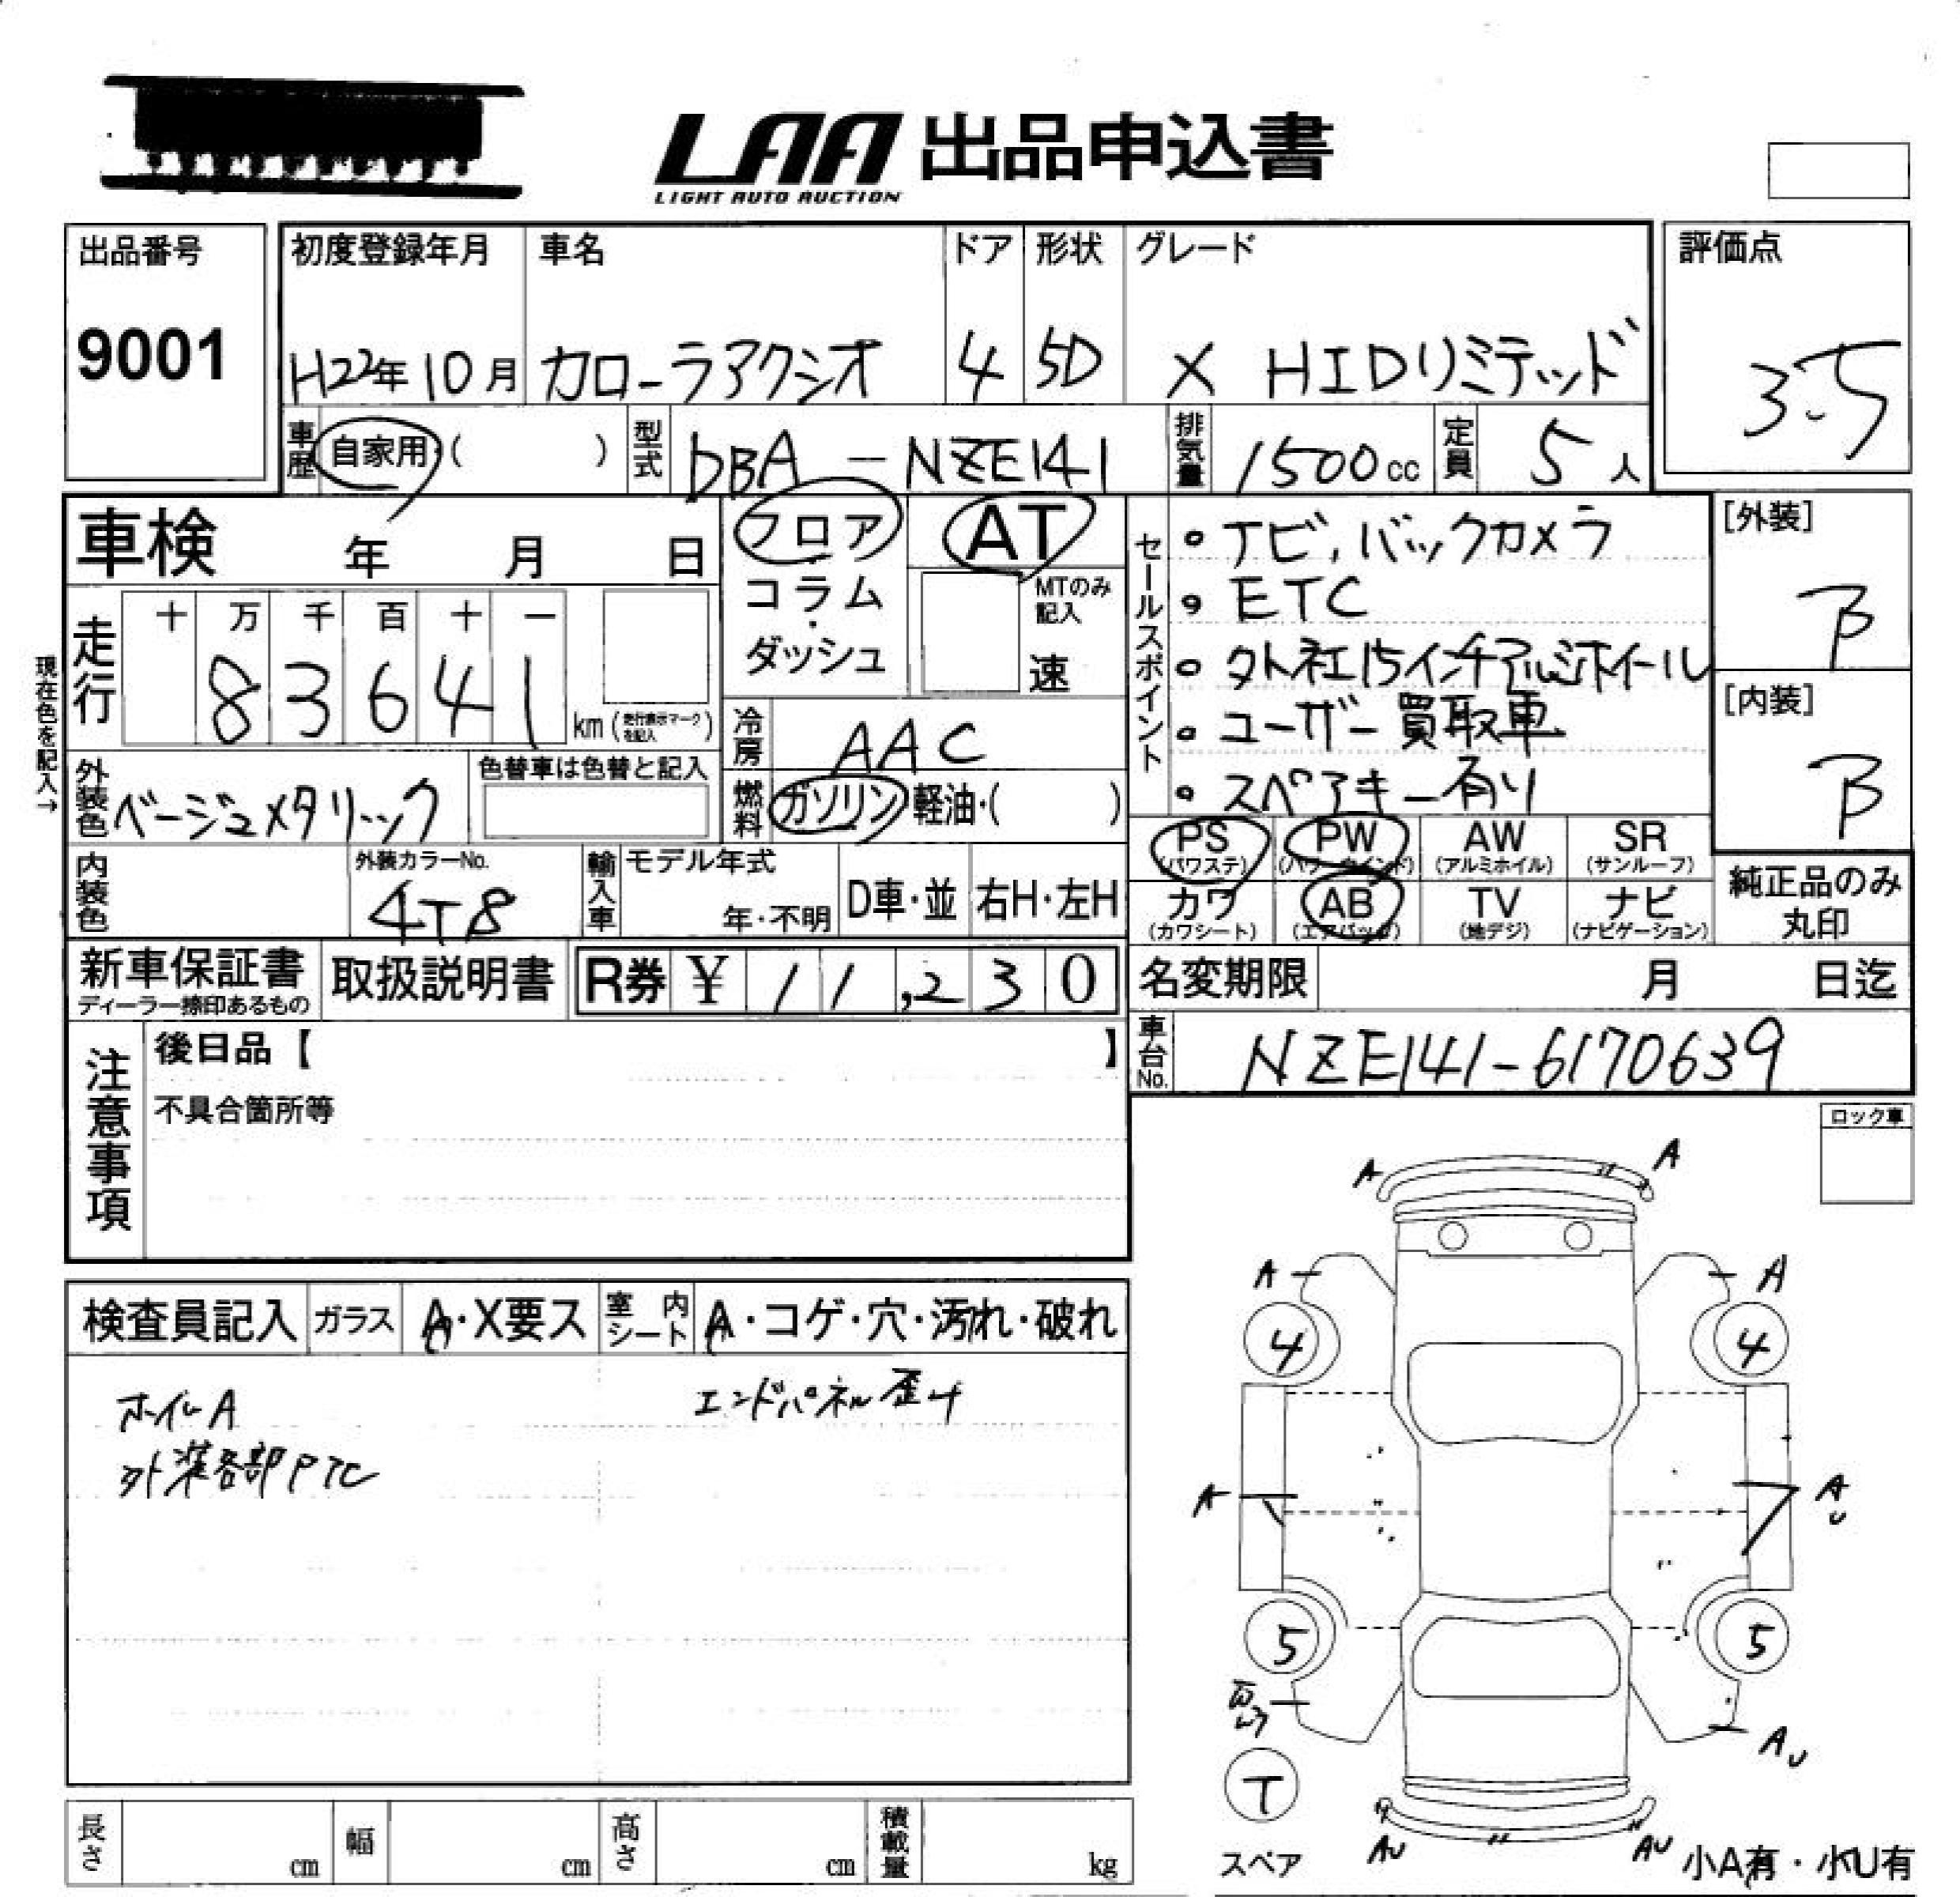 LAA 出品申込書
LIGHT AUTO AUCTION
出品番号
9001
初度登録年月 車名 ドア 形状 グレード
H22年10月 カローラアクシオ 4 SD X HIDリミテッド
評価点
3.5
車歴 自家用・( ) 型式 DBA-NZE141 排気量 1500cc 定員 5人
車検 年 月 日
フロア・コラム・ダッシュ
AT
MTのみ記入
速
現在色を記入→
走行 十 万 千 百 十 一
83641 km (走行表示マークを記入)
冷房 AAC
外装色 ベージュメタリック
色替車は色替と記入
燃料 ガソリン 軽油・( )
セールスポイント
・ナビ,バックカメラ
・ETC
・外社15インチアルミホイール
・ユーザー買取車
・スペアキー有り
[外装]
B
[内装]
B
PS PW AW SR
(パワステ) (パワーウインド) (アルミホイル) (サンルーフ)
カワ AB TV ナビ
(カワシート) (エアバッグ) (地デジ) (ナビゲーション)
純正品のみ丸印
内装色 外装カラーNo. 4T8
輸入車 モデル年式 年・不明 D車・並 右H・左H
新車保証書 取扱説明書 R券 ¥11,230
ディーラー捺印あるもの
名変期限 月 日迄
車台No. NZE141-6170639
注意事項
後日品【 】
不具合箇所等
ロック車
検査員記入 ガラス A・X要ス 室内シート A・コゲ・穴・汚れ・破れ
ホイルA エンドパネル歪み
外装各部PTC
A A
A A
4 4
A A
U
5 5
AU
T
スペア
AU AU
小A有・小U有
長さ cm 幅 cm 高さ cm 積載量 kg